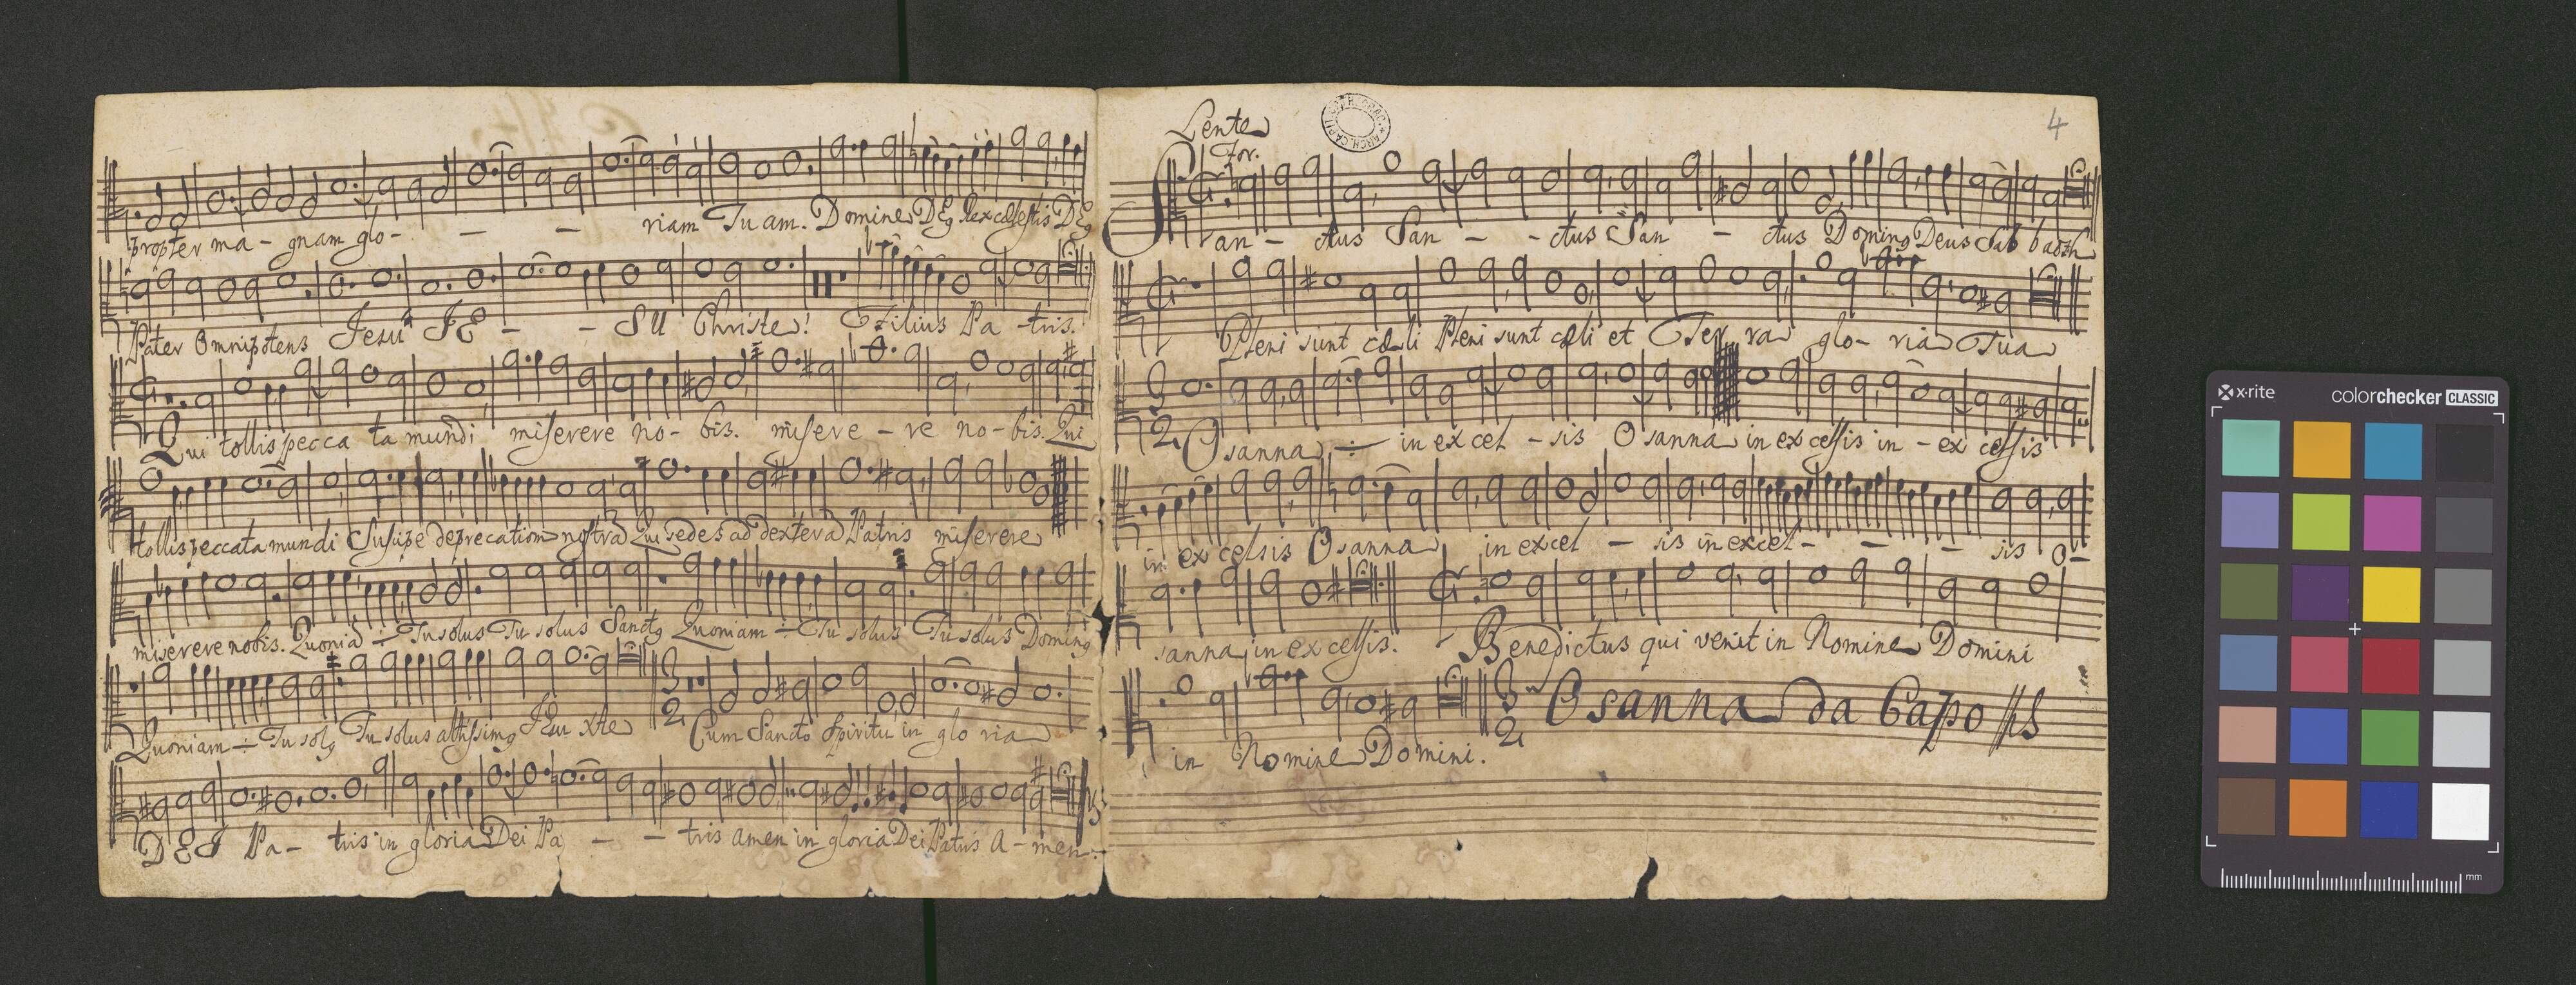 propter ma - gnam glo - - - riam Tu am. Domine DEg Rex cælestis DEg
Pater Omnipotens Jesu JE - - SU Christe! Filius Pa - tris.
Qui tollis pecca ta mundi miserere no - bis. misere - re no - bis. Qui
tollis peccata mundi Suscipe deprecation nostrã Qui sedes ad dexterã Patris miserere
miserere nobis. Quoniã ÷ Tu solus Tu solus Sanctg Quoniam ÷ Tu solus Tu solus Doming
Quoniam ÷ Tu solg Tu solus altissimg JEsu xte 3 2 Cum Sancto Spiritu in glo ria
DEI Pa - tris in gloria Dei Pa - - tris amen in gloria Dei Patris A - men.
4
Lente
For.
San - ctus San - - ctus San - ctus Doming Deus Sab baoth
Pleni sunt cæli Pleni sunt cæli et Ter ra glo - ria Tua
3 2 Osanna ÷ in ex cel - sis Osanna in ex celsis in - ex celsis
in ex celsis Osanna in excel - sis in excel - - - sis O -
sanna in ex celsis. Benedictus qui venit in Nomine Domini
3 2 Osanna da Capo
in Nomine Domini.
x-rite colorchecker CLASSIC
mm